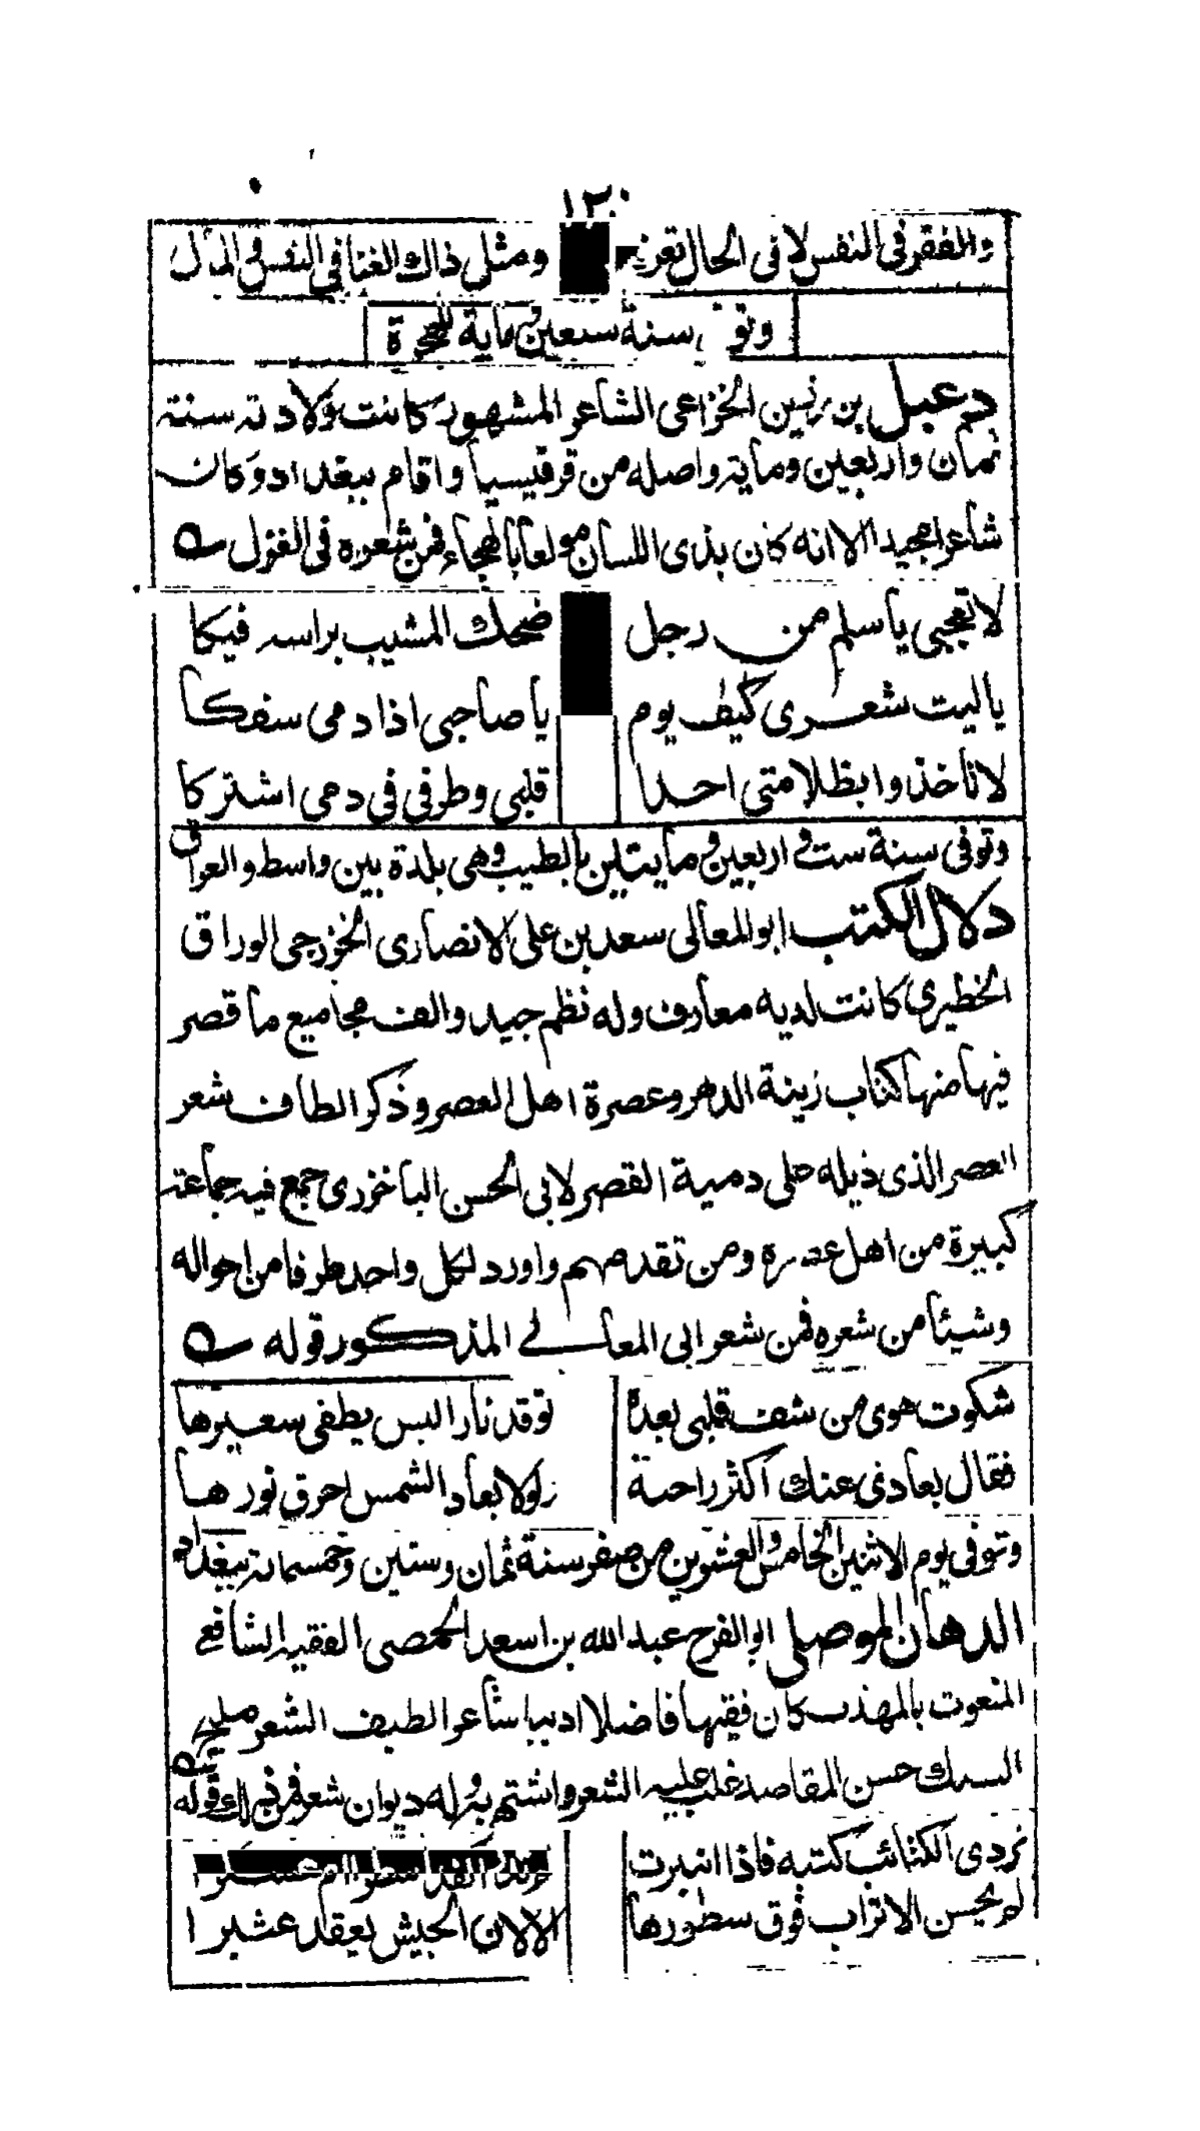 ١٢٠
والفقر في النفس لا في الحال تعرفه ومثل ذاك الغنا في النفس في المال
وتوفي سنة سبعين وماية للهجرة
دعبل بن رزين الخزاعي الشاعر المشهور كانت ولادته سنة
ثمان واربعين وماية واصله من قرقيسيا واقام ببغداد وكان
شاعرا مجيدا الا انه كان بذى اللسان مولعا بالهجاء فمن شعره في الغزل
لا تعجبي يا سلم من رجل ضحك المشيب براسه فبكا
يا ليت شعرى كيف يوم يا صاحبى اذا دمى سفكا
لا تاخذوا بظلامتى احدا قلبى وطرفى في دمى اشتركا
وتوفى سنة ست واربعين ومايتين بالطيب وهى بلدة بين واسط والعراق
دلال الكتب ابو المعالى سعد بن على الانصارى الخزرجى الوراق
الخطيرى كانت لديه معارف وله نظم جيد والف مجاميع ما قصر
فيها منها كتاب زينة الدهر وعصرة اهل العصر وذكر الطاف شعر
العصر الذى ذيله على دمية القصر لابى الحسن الباخرزى جمع فيه جماعة
كبيرة من اهل عصره ومن تقدمهم واورد لكل واحد طرفا من احواله
وشيئا من شعره فمن شعر ابى المعالي المذكور قوله
شكوت هوى من شف قلبى بعده توقد نار اليس يطفى سعيرها
فقال بعادى عنك اكثر راحة ولولا بعاد الشمس احرق نورها
وتوفى يوم الاثنين الخامس والعشرين من صفر سنة ثمان وستين وخمسماية ببغداد
الدهان الموصلى ابو الفرج عبد الله بن اسعد الحمصى الفقيه الشافعي
المنعوت بالمهذب كان فقيها فاضلا اديبا شاعرا لطيف الشعر مليح
السبك حسن المقاصد غلب عليه الشعر واشتهر به وله ديوان شعر فمن ذلك قوله
تردى الكتائب كتبه فاذا انبرت
لم يحسن الاتراب فوق سطورها الا لان الجيش يعقد عثيرا